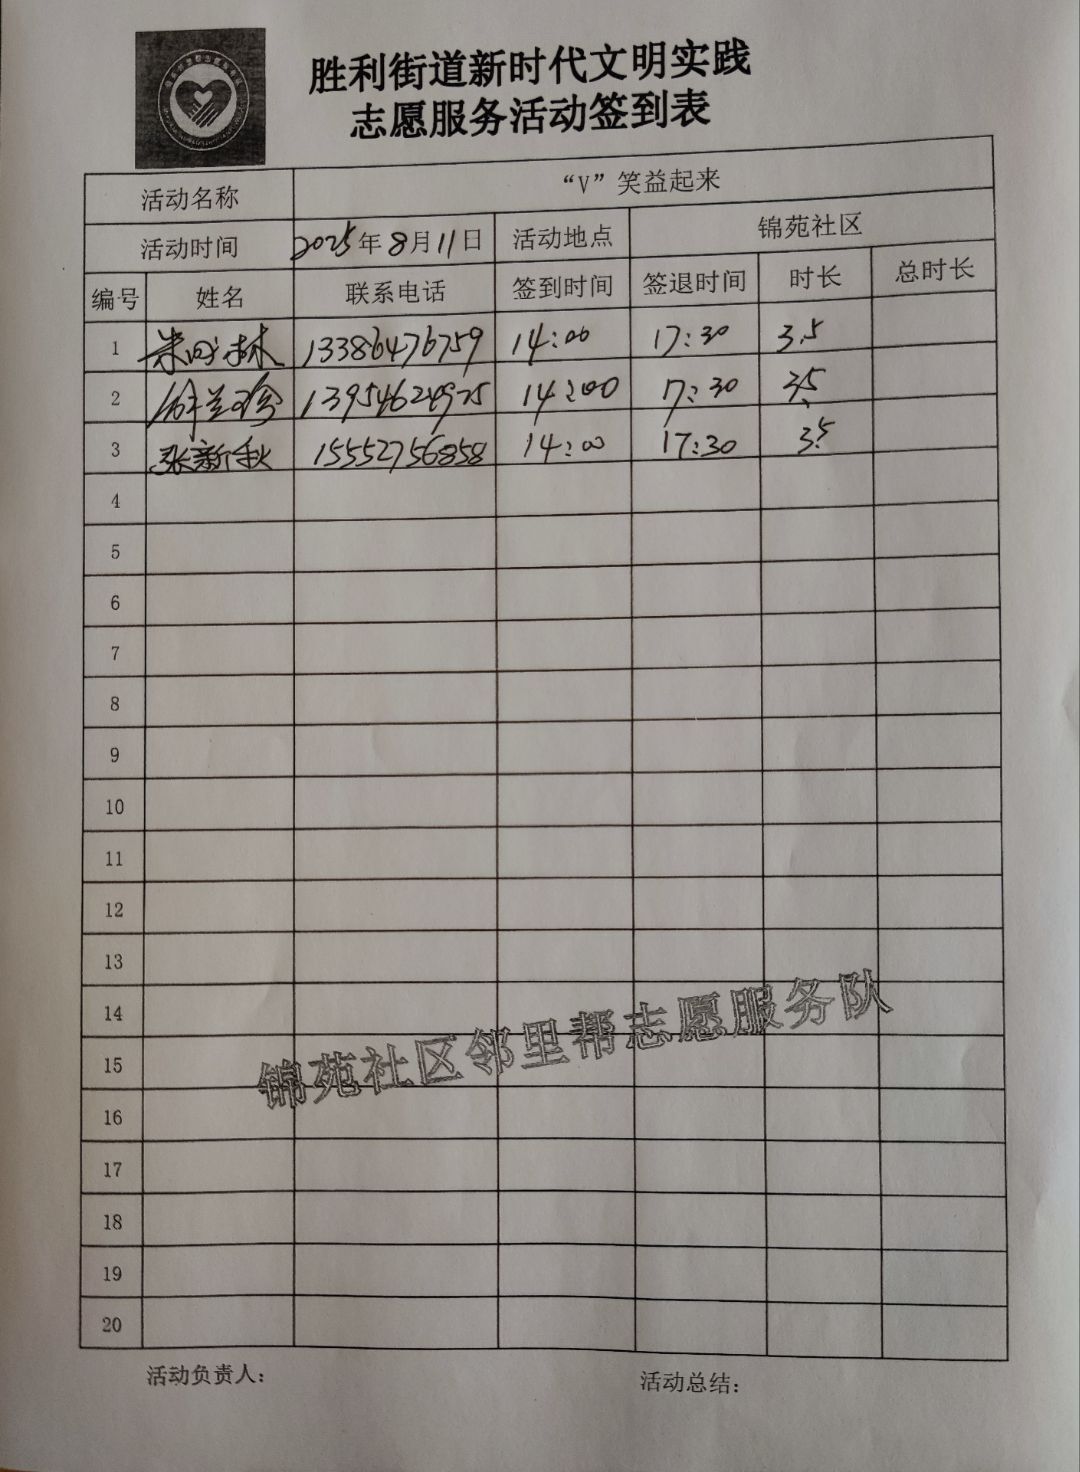 胜利街道新时代文明实践
志愿服务活动签到表
活动名称 “V”笑益起来
活动时间 2025年8月11日 活动地点 锦苑社区
编号 姓名 联系电话 签到时间 签退时间 时长 总时长
1 13386476759 14:00 17:30 3.5
2 徐兰珍 13954624975 14:00 17:30 3.5
3 张新秋 15552756858 14:00 17:30 3.5
4
5
6
7
8
9
10
11
12
13
14
15
16
17
18
19
20
锦苑社区邻里帮志愿服务队
活动负责人: 活动总结: